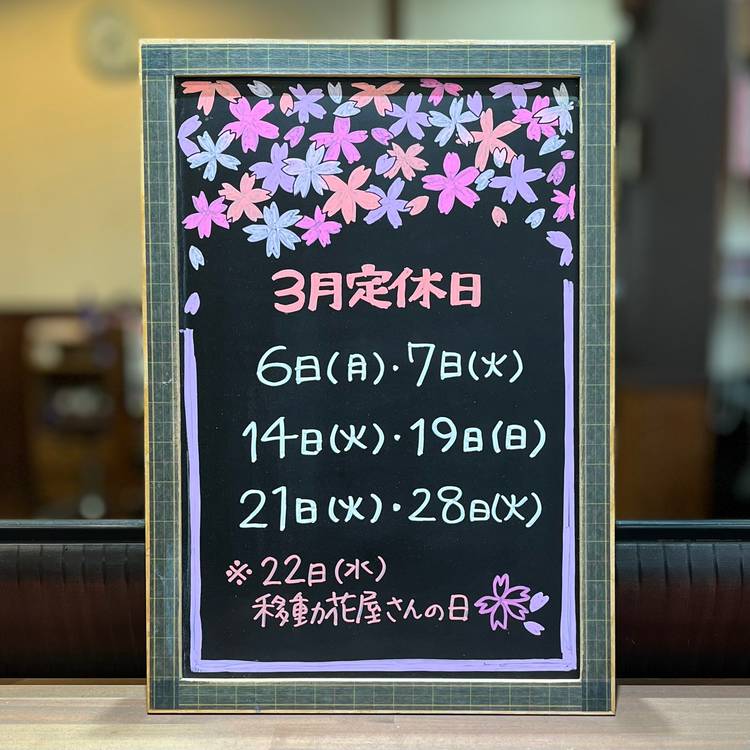 3月定休日
6日(月)・7日(火)
14日(火)・19日(日)
21日(火)・28日(火)
※22日(水)
移動花屋さんの日